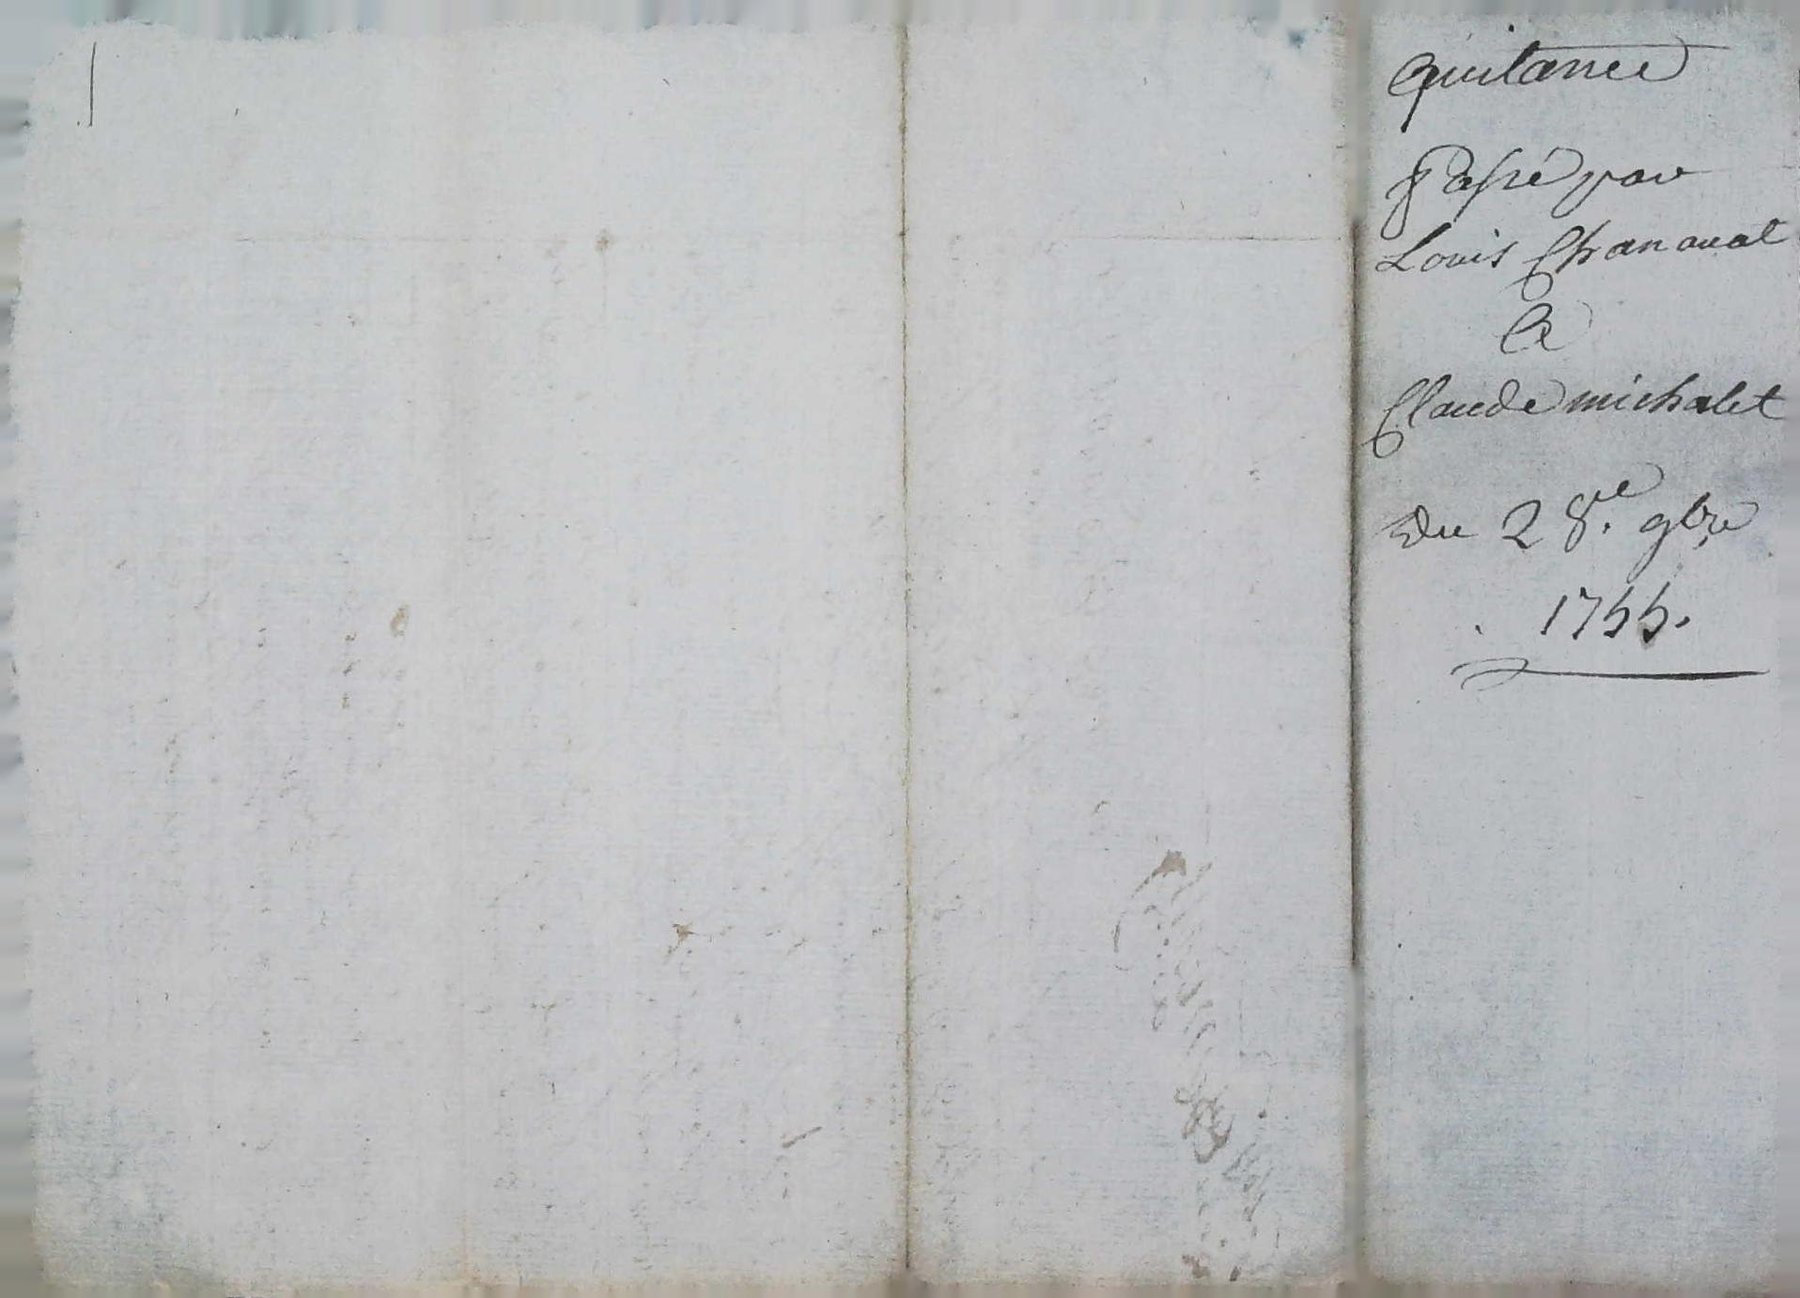 Quitance
Passé par
Louis Chanaual
A
Claude michalet
Du 28.e 9bre
1755.